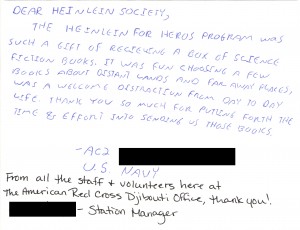 DEAR HEINLEIN SOCIETY,
THE HEINLEIN FOR HEROS PROGRAM WAS
SUCH A GIFT OF RECIEVING A BOX OF SCIENCE
FICTION BOOKS. IT WAS FUN CHOOSING A FEW
BOOKS ABOUT DISTANT LANDS AND FAR AWAY PLACES,
WAS A WELCOME DISTRACTION FROM DAY TO DAY
LIFE. THANK YOU SO MUCH FOR PUTTING FORTH THE
TIME & EFFORT INTO SENDING US THOSE BOOKS
-AC2
U.S. NAVY
From all the staff + volunteers here at
The American Red Cross Djibouti Office, thank you!
- Station Manager